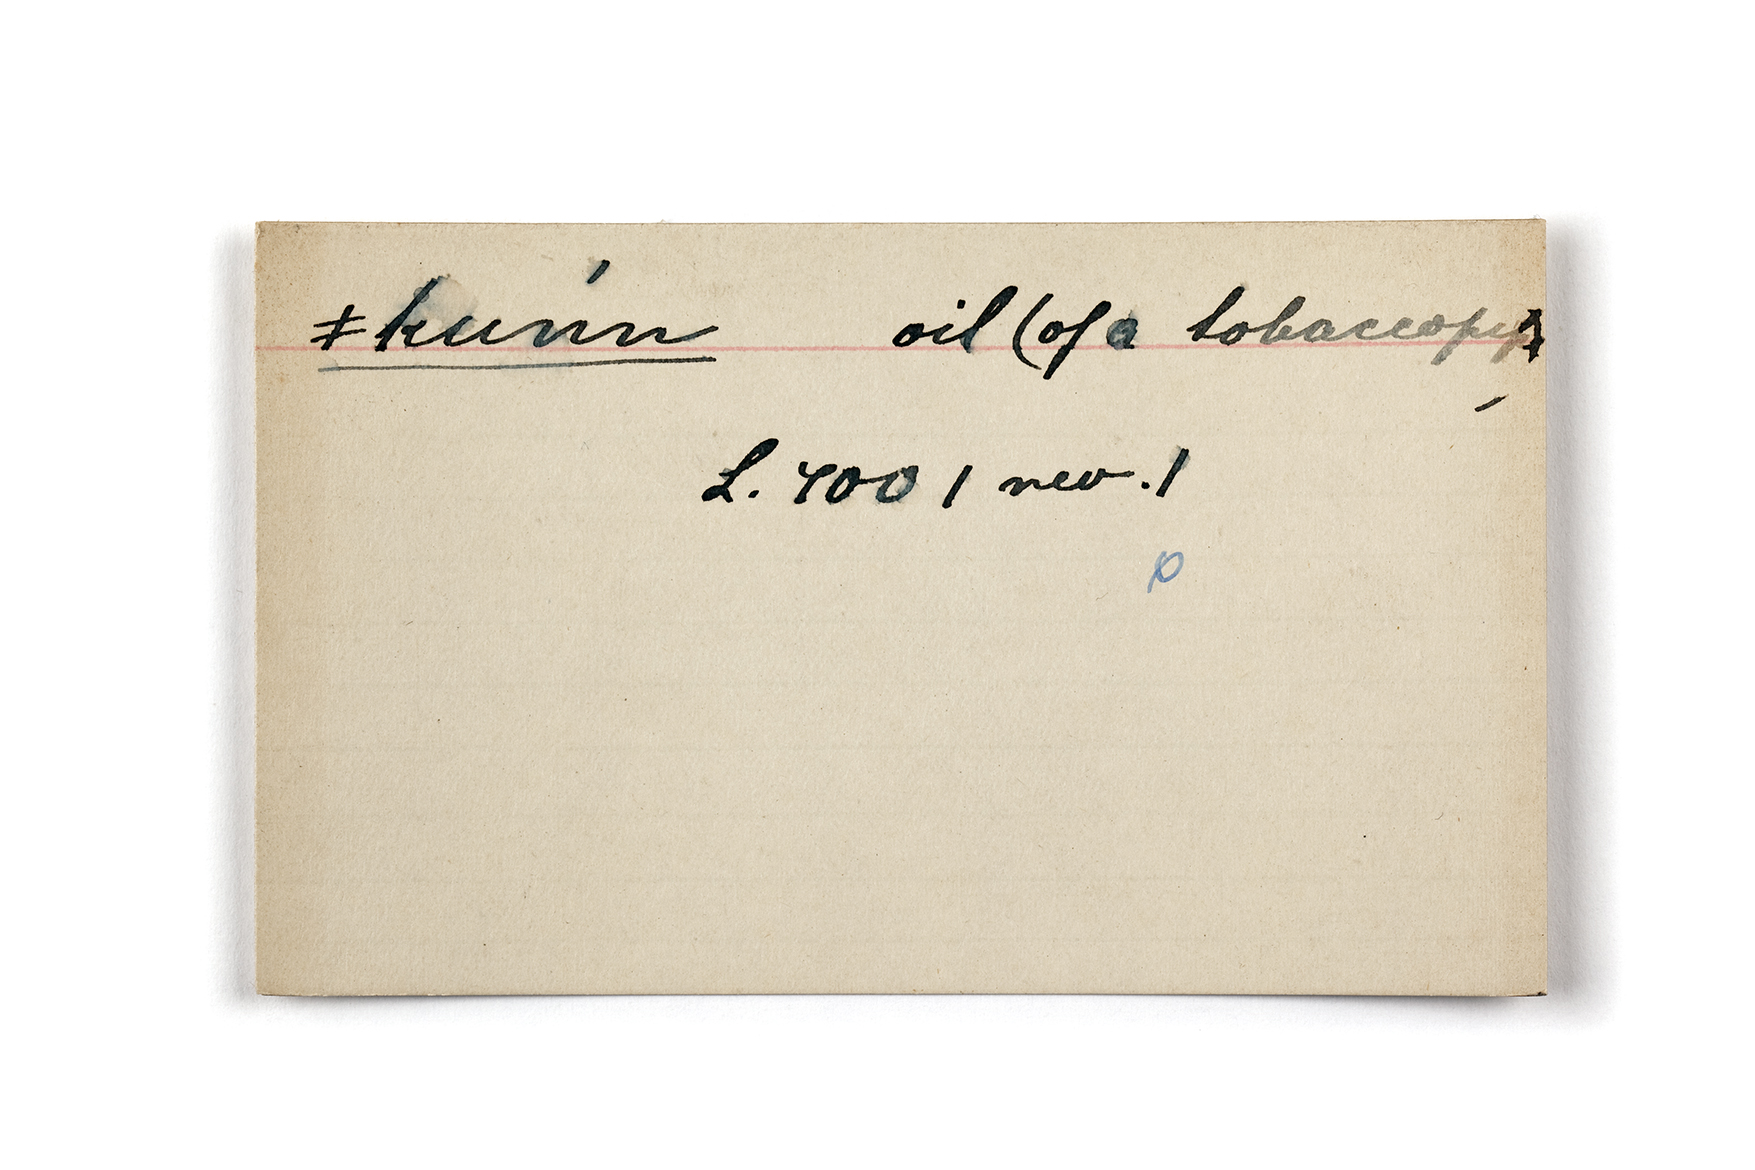 ǂkunn oil (of a tobaccopipe
L. 400 / rev. /